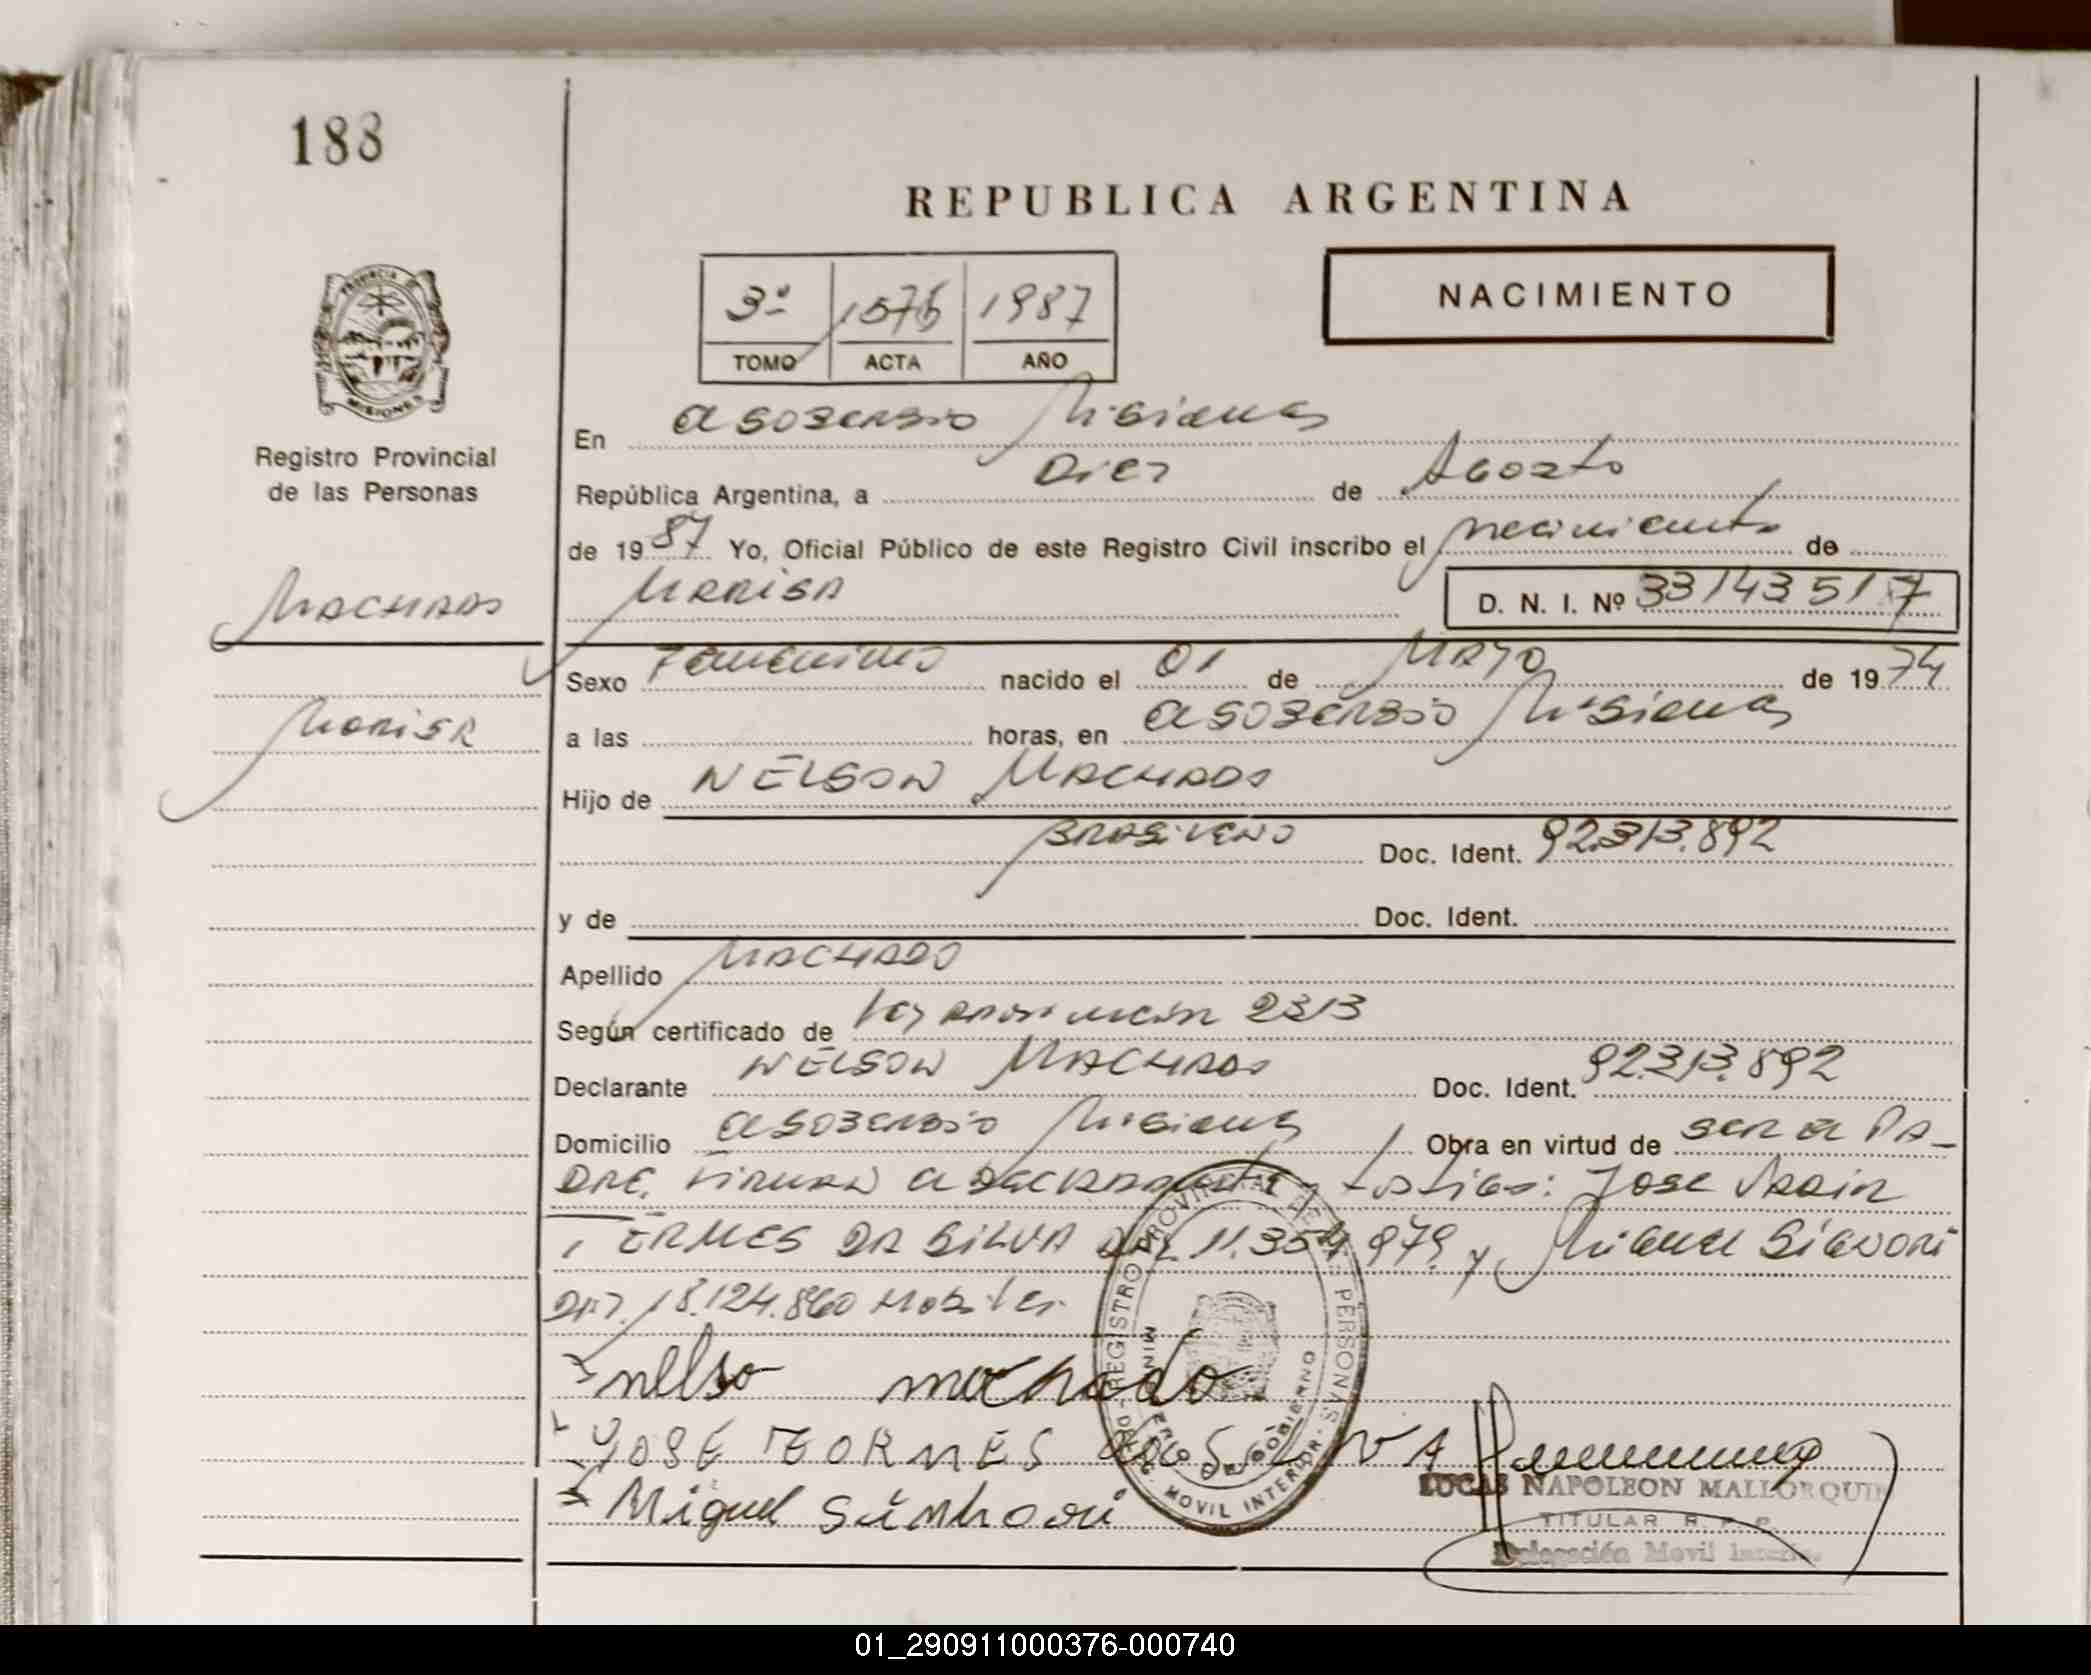 188
REPUBLICA ARGENTINA
3º 1576 1987
TOMO ACTA AÑO
NACIMIENTO
PROVINCIA DE MISIONES
Registro Provincial
de las Personas
MACHADO
MARISA
En Misiones
República Argentina, a Diez de Agosto
de 1987 Yo, Oficial Público de este Registro Civil inscribo el nacimiento de
MARISA D. N. I. Nº 33143517
Sexo Femenino nacido el 01 de MAYO de 1974
a las horas, en Misiones
Hijo de NELSON MACHADO
BRASILENO Doc. Ident. 92.313.892
y de Doc. Ident.
Apellido MACHADO
Según certificado de 2313
Declarante NELSON MACHADO Doc. Ident. 92.313.892
Domicilio Misiones Obra en virtud de SER El PA-
DRE. FIRMAN El DECLARANTE y testigos: JOSE
TERMES DA SILVA 11.354.979 y Miguel
DNI. 18.124.860
nelso machado
JOSE TEORMES da SILVA
Miguel
REGISTRO PROVINCIAL DE LAS PERSONAS
MINISTERIO DE GOBIERNO
MOVIL INTERIOR
LUCAS NAPOLEON MALLORQUIN
TITULAR R. P. P.
Delegación Movil Interior
01_290911000376-000740